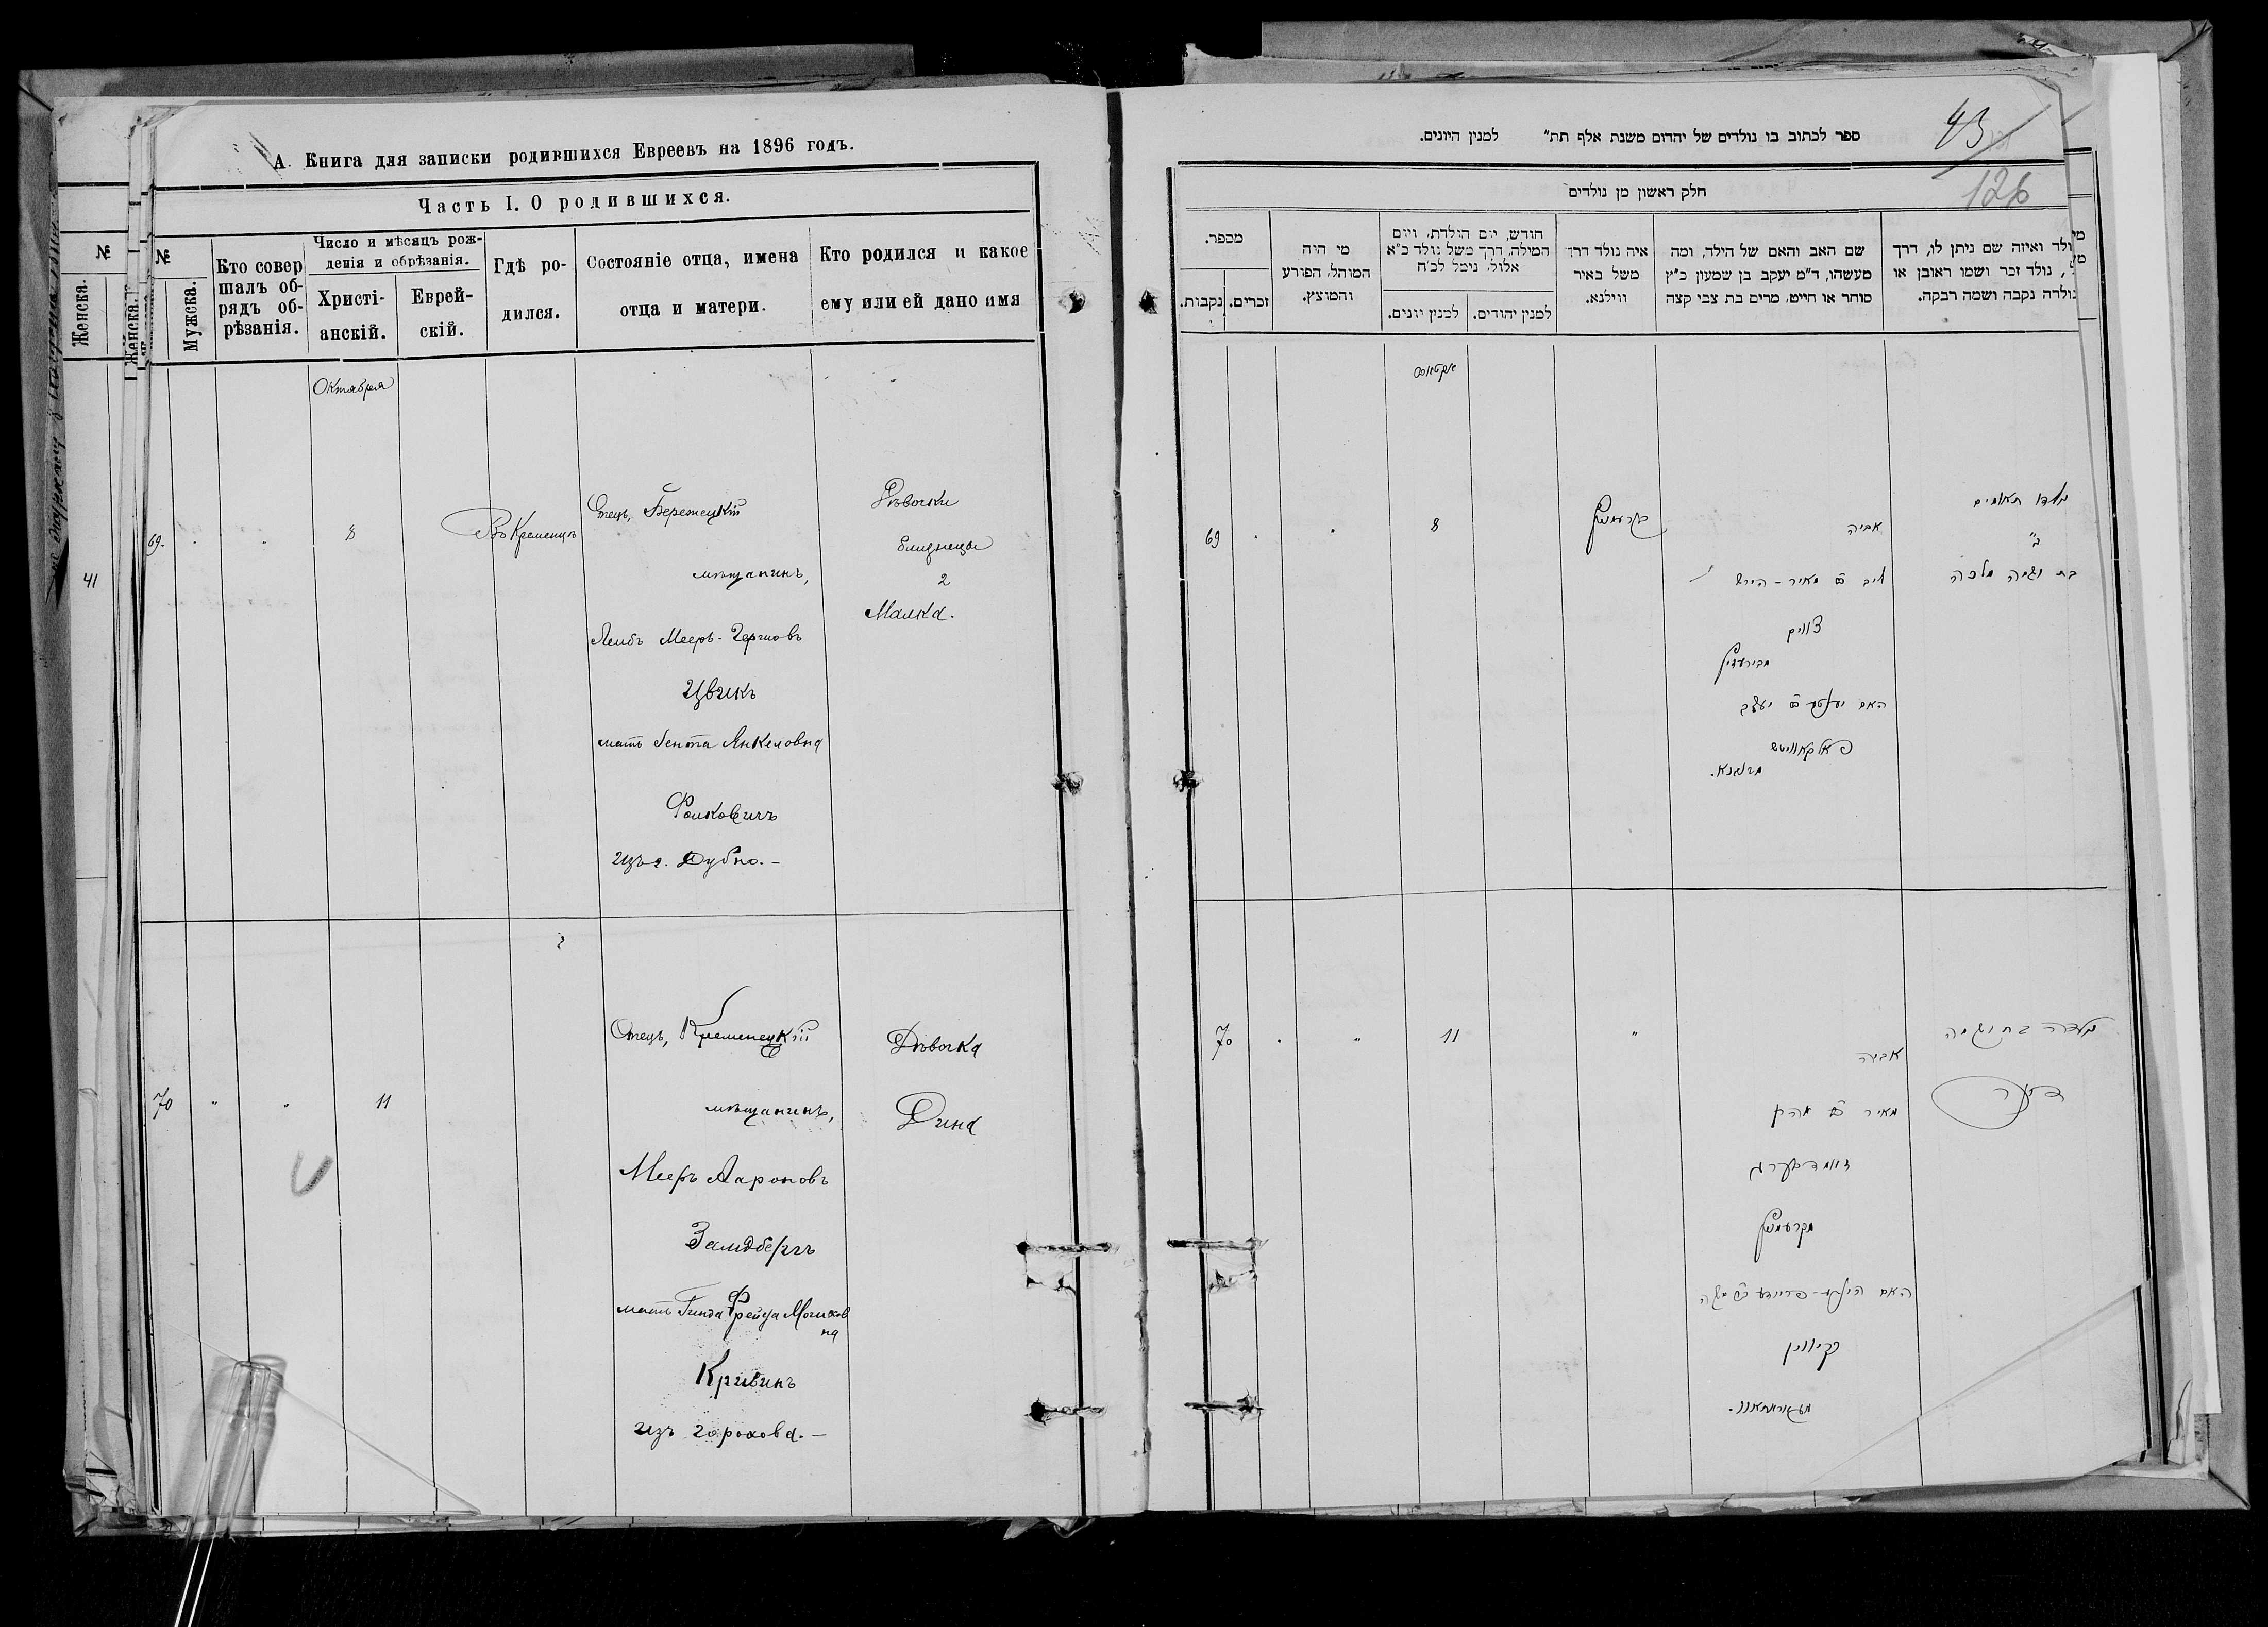 А. Книга для записки родившихся Евреевъ на 1896 годъ.
Часть I. О родившихся.
№
Женска.
№
Женска.
Мужска.
Кто совер
шалъ об-
рядъ об-
рѣзанія.
Число и мѣсяцъ рож-
денія и обрѣзанія.
Христі-
анскій.
Еврей-
скій.
Гдѣ ро-
дился.
Состояніе отца, имена
отца и матери.
Кто родился и какое
ему или ей дано имя
41
Октября
69.
8
Въ Кременцѣ
Отецъ, Бережецкій
мѣщанинъ,
Лейбъ Мееръ-Гершовъ
Цвикъ
мать Ента Янкеловна
Фолковичъ
изъ г. Дубно. –
Дѣвочки
близнецы
2
Малка.
70
"
11
Отецъ, Кременецкій
мѣщанинъ,
Мееръ Аароновъ
Замдбергъ
мать Гинда Фрейда Мошков
на
Кривинъ
изъ Горохова. –
Дѣвочка
Дина
ספר לכתוב בו נולדים של יהדום משנת אלף תת״ למנין היונים.
43
126
חלק ראשון מן נולדים
מספר.
נקבות.
זכרים.
מי היה
המוהל, הפורע
והמוצץ.
חודש, יום הולדת, ויום
המילה, דרך משל נולד כ״א
אלול, נימל לכ״ח
למנין יונים.
למנין יהודים.
איה נולד דרך
משל באיר
ווילנא.
שם האב והאם של הילד, ומה
מעשהו, ד״מ יעקב בן שמעון כ״ץ
סוחר או חייט, מרים בת צבי קצה
ולד ואיזה שם ניתן לו, דרך
, נולד זכר ושמו ראובן או
נולדה נקבה ושמה רבקה.
69
8
קרעמניץ
אביה
ליב ב״מ מאיר-הירש
צוויק
האם יענטע ב״מ יעקב
פאלקאוויטש
מדובנא.
נולדו תאומים
ב׳
בת ושמה מלכה
70
"
11
"
אביה
מאיר ב״מ אהרן
זאמדבערג
מקרעמניץ
האם הינדע-פריידע ב״מ משה
קריווין
נולדה בת ושמה
דינה